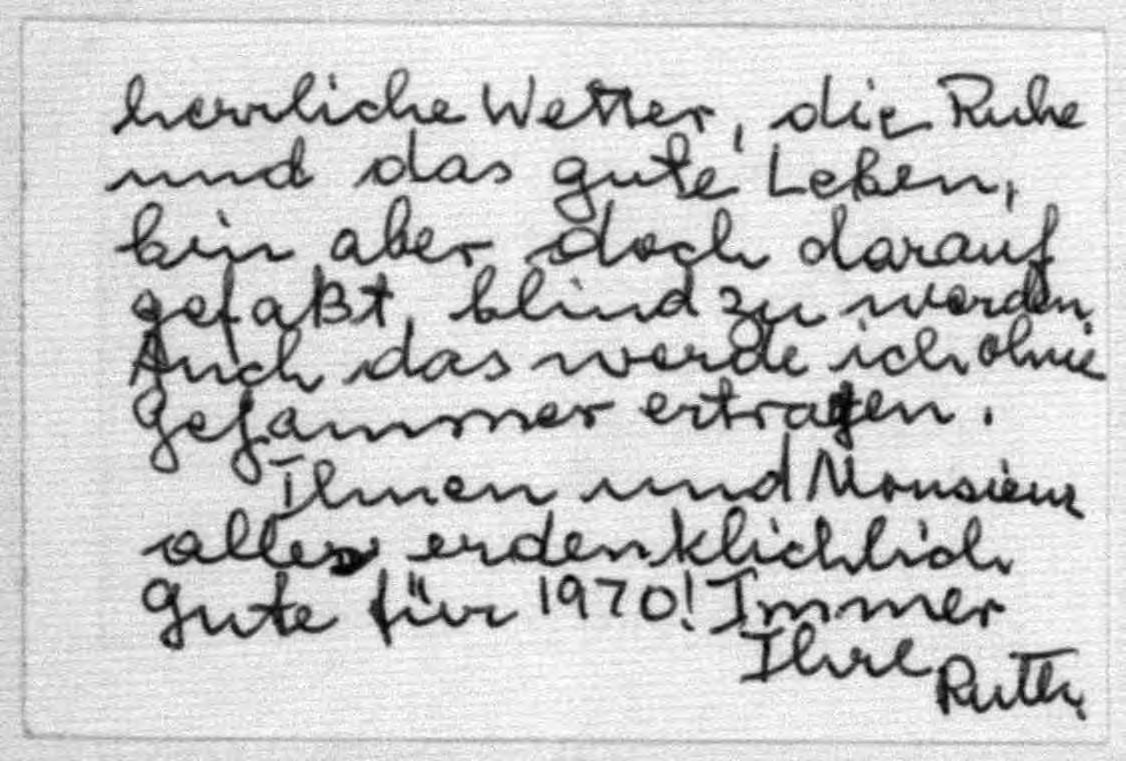 herrliche Wetter, die Ruhe
und das gute Leben,
bin aber doch darauf
gefaßt, blind zu werden.
Auch das werde ich ohne
Gejammer ertragen.
Ihnen und Monsieur
alles erdenklichlich
Gute für 1970! Immer
Ihre Ruth.